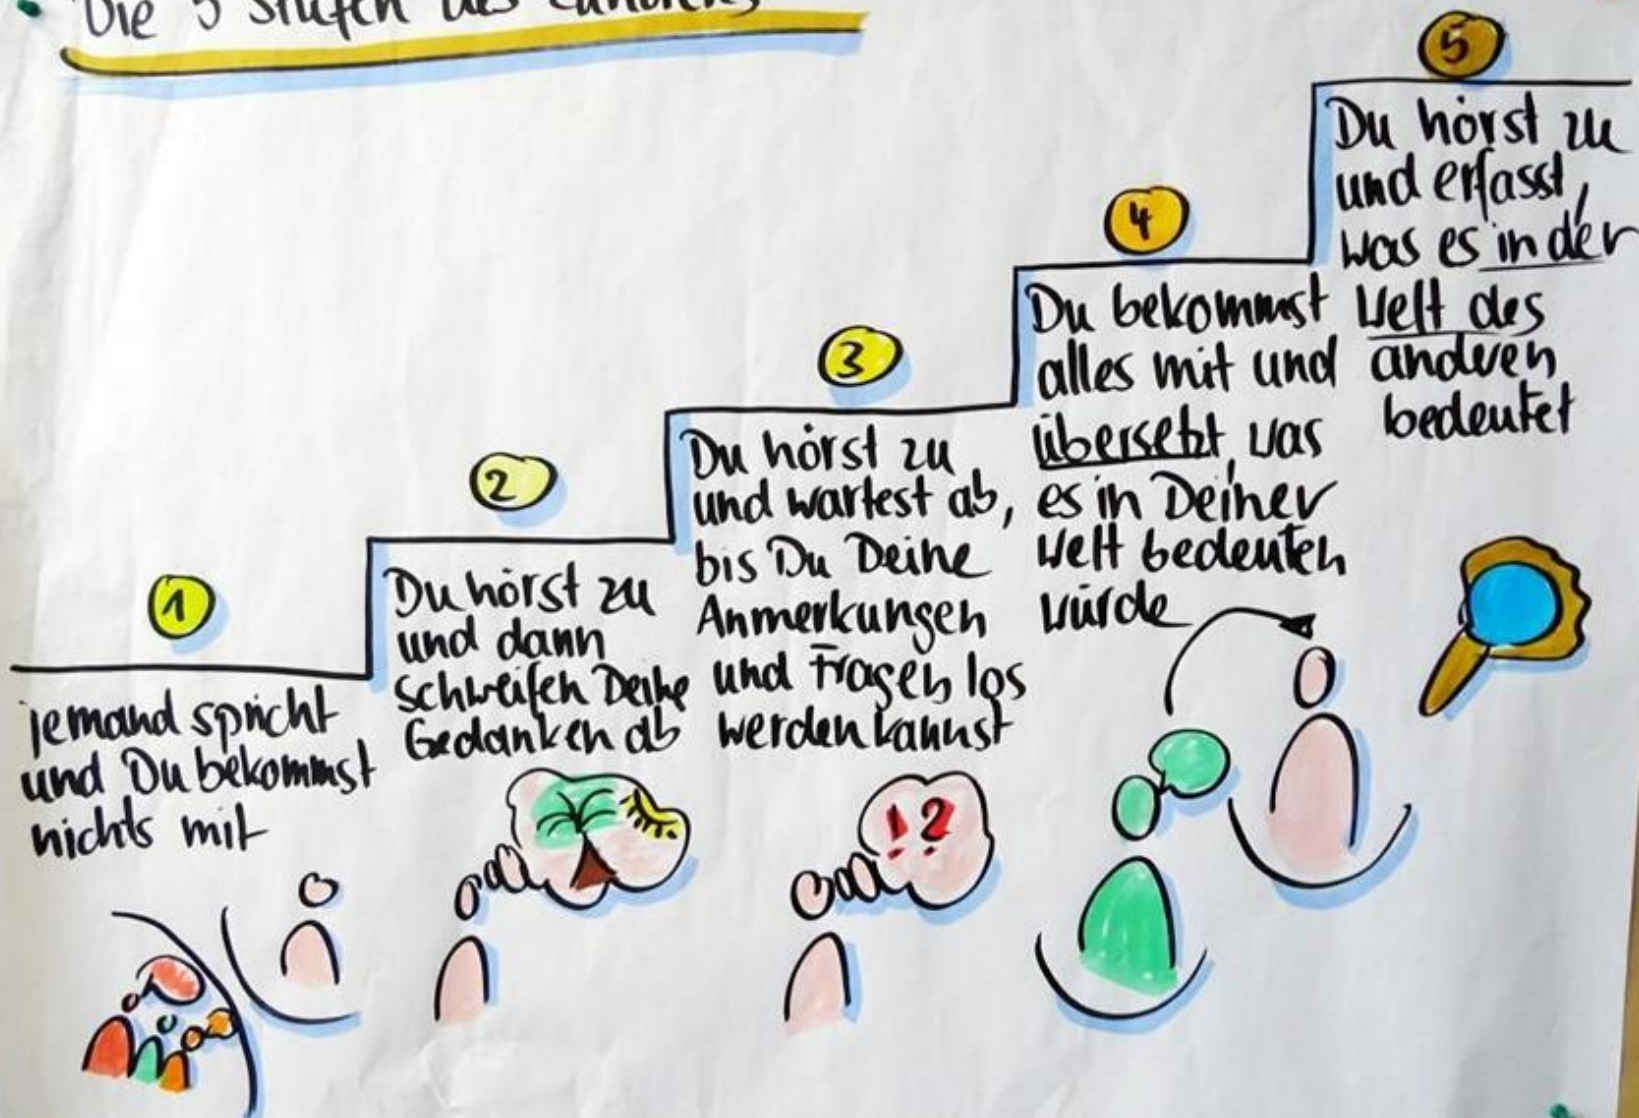 Die 5 Stufen des Zuhörens
1
jemand spricht
und Du bekommst
nichts mit
2
Du hörst zu
und dann
schweifen Deine
Gedanken ab
3
Du hörst zu
und wartest ab,
bis Du Deine
Anmerkungen
und Fragen los
werden kannst
! ?
4
Du bekommst
alles mit und
übersetzt, was
es in Deiner
Welt bedeuten
würde
5
Du hörst zu
und erfasst,
was es in der
Welt des
anderen
bedeutet